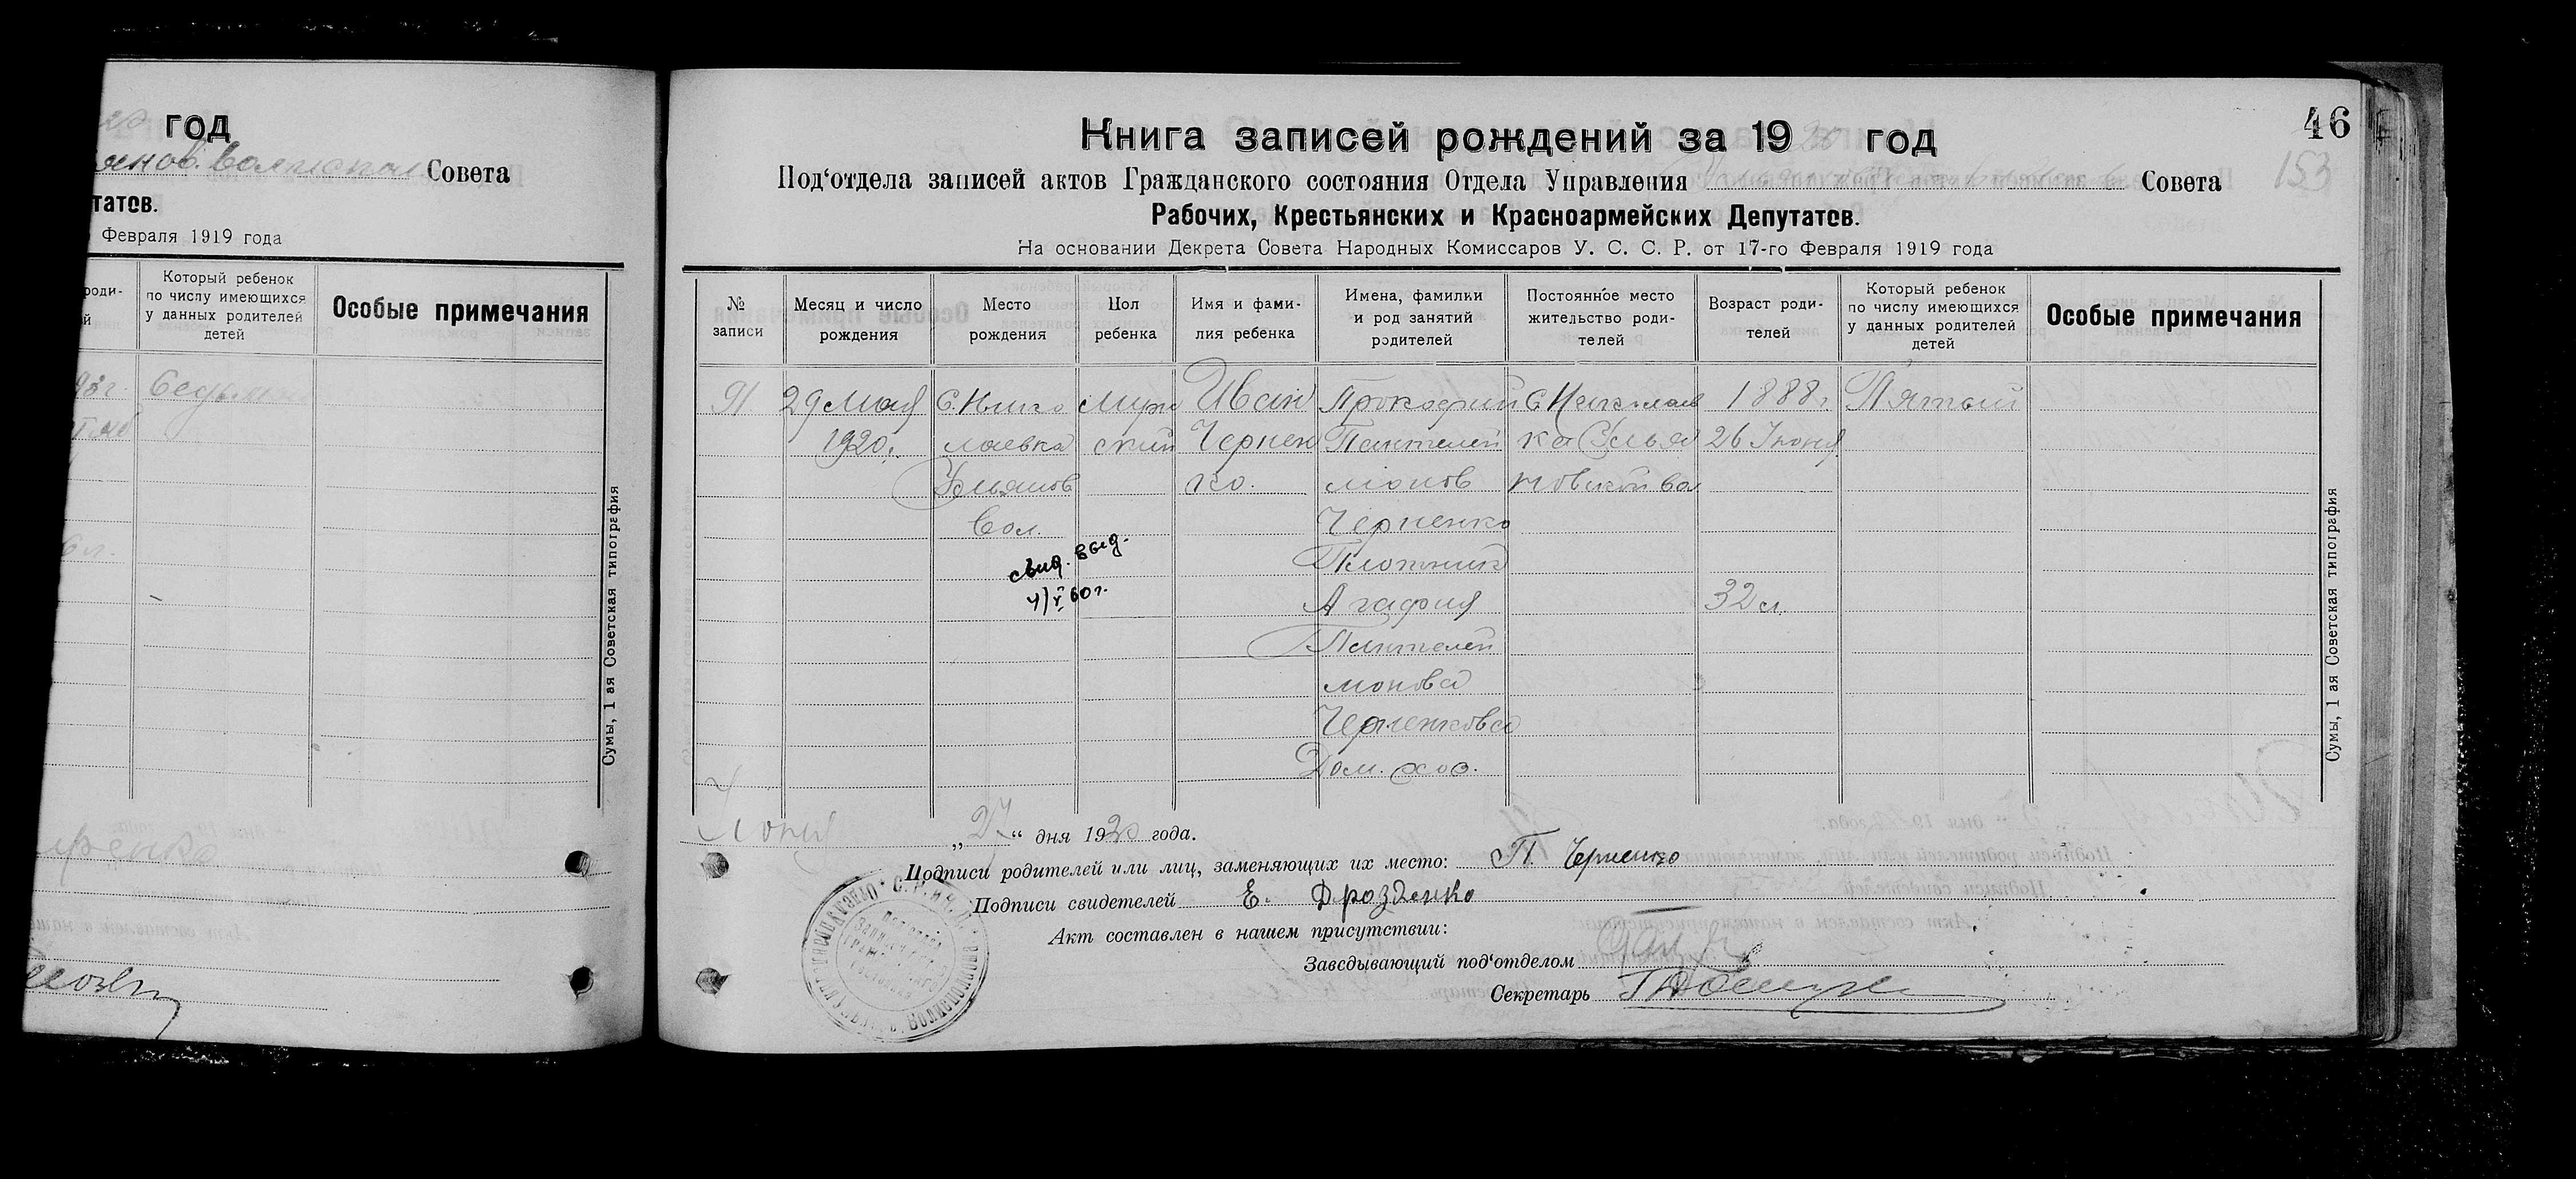 год
Совета
татов.
Февраля 1919 года
роди-
й
Который ребенок
по числу имеющихся
у данных родителей
детей
Особые примечания
Сумы, 1 ая Советская типография
46
153
Книга записей рождений за 1920 год
Под'отдела записей актов Гражданского состояния Отдела Управления Совета
Рабочих, Крестьянских и Красноармейских Депутатов.
На основании Декрета Совета Народных Комиссаров У. С. С. Р. от 17-го Февраля 1919 года
№
записи
Месяц и число
рождения
Место
рождения
Пол
ребенка
Имя и фами-
лия ребенка
Имена, фамилии
и род занятий
родителей
Постоянное место
жительство роди-
телей
Возраст роди-
телей
Который ребенок
по числу имеющихся
у данных родителей
детей
Особые примечания
91
29 Мая
1920г.
С. Нико
лаевка
Ульянов
вол.
Мужс
ский
Иван
Чернен
ко.
Прокофий
Пантелей
монов
Черненко
Плотник
Агафия
Пантелей
монова
Черненкова
Дом. хоз.
С Николаев
ка Улья
новской вол
1888г.
26 Июня
32 л.
Пятый
свид. выд.
4/V 60г.
Июня „24“ дня 1920 года.
Подписи родителей или лиц, заменяющих их место: П. Черненко
Подписи свидетелей Е. Дрозденко
Акт составлен в нашем присутствии:
Заведывающий под'отделом
Секретарь
Сумы, 1 ая Советская типография